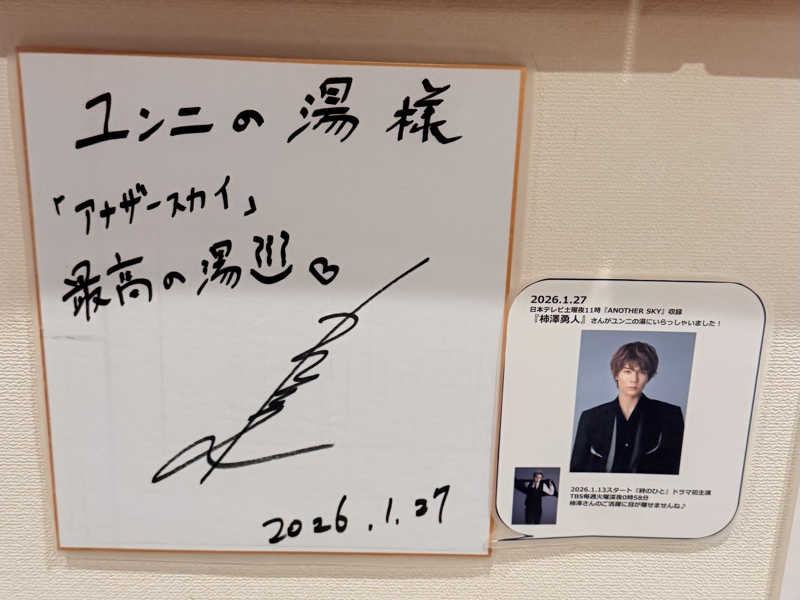 ユンニの湯 様
「アナザースカイ」
最高の湯!!!
2026.1.27
2026.1.27
日本テレビ土曜夜11時『ANOTHER SKY』収録
『柿澤勇人』さんがユンニの湯にいらっしゃいました！
2026.1.13スタート『終のひと』ドラマ初主演
TBS毎週火曜深夜0時58分
柿澤さんのご活躍に目が離せませんね♪